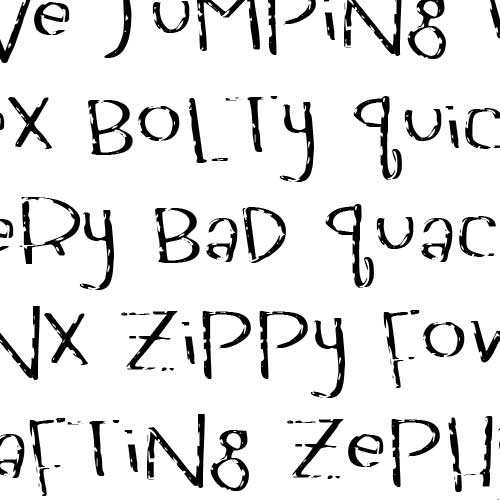 ve jumping
ex Bolty quic
ery Bad quac
nx zippy fow
afting zeph